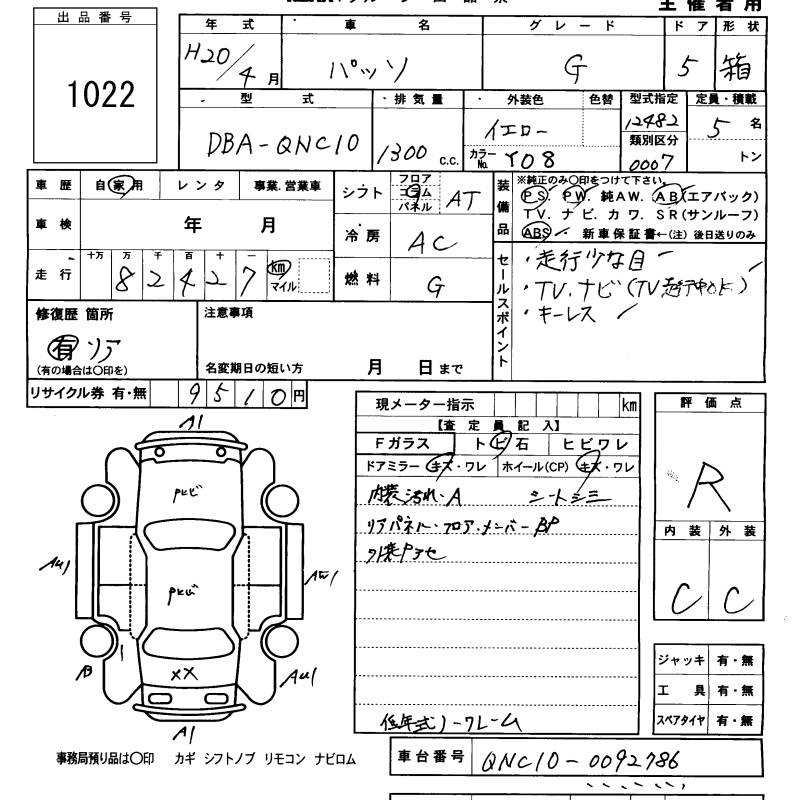 主催者用
出品番号
1022
年式 車名 グレード ドア 形状
H20/4月 パッソ G 5 箱
型式 排気量 外装色 色替 型式指定 定員・積載
DBA-QNC10 1300 c.c. イエロー 12482 5名
カラーNo. Y08 類別区分 0007 トン
車歴 自家用 レンタ 事業.営業車
車検 年 月
走行 十万 万 千 百 十 一
8 2 4 2 7 km マイル
シフト フロア コラム パネル AT
冷房 AC
燃料 G
装備品 ※純正のみ〇印をつけて下さい。
PS. PW. 純AW. AB(エアバッグ)
TV. ナビ. カワ. SR(サンルーフ)
ABS. 新車保証書←(注) 後日送りのみ
セールスポイント
・走行少な目
・TV.ナビ(TV走行中OK)
・キーレス
修復歴 箇所
有 リア
(有の場合は〇印を)
注意事項
名変期日の短い方 月 日まで
リサイクル券 有・無 9510円
現メーター指示 km
【査定員記入】
Fガラス トビ石 ヒビワレ
ドアミラー キズ・ワレ ホイール(CP) キズ・ワレ
内装汚れ・A シートシミ
リアパネル・フロア・メンバーBP
外装Pアセ
低年式ノークレーム
評価点
R
内装 外装
C C
ジャッキ 有・無
工具 有・無
スペアタイヤ 有・無
A1
Pトビ
AU1
Pトビ
AW1
B
XX
AU1
A1
事務局預り品は〇印 カギ シフトノブ リモコン ナビロム
車台番号 QNC10-0092786